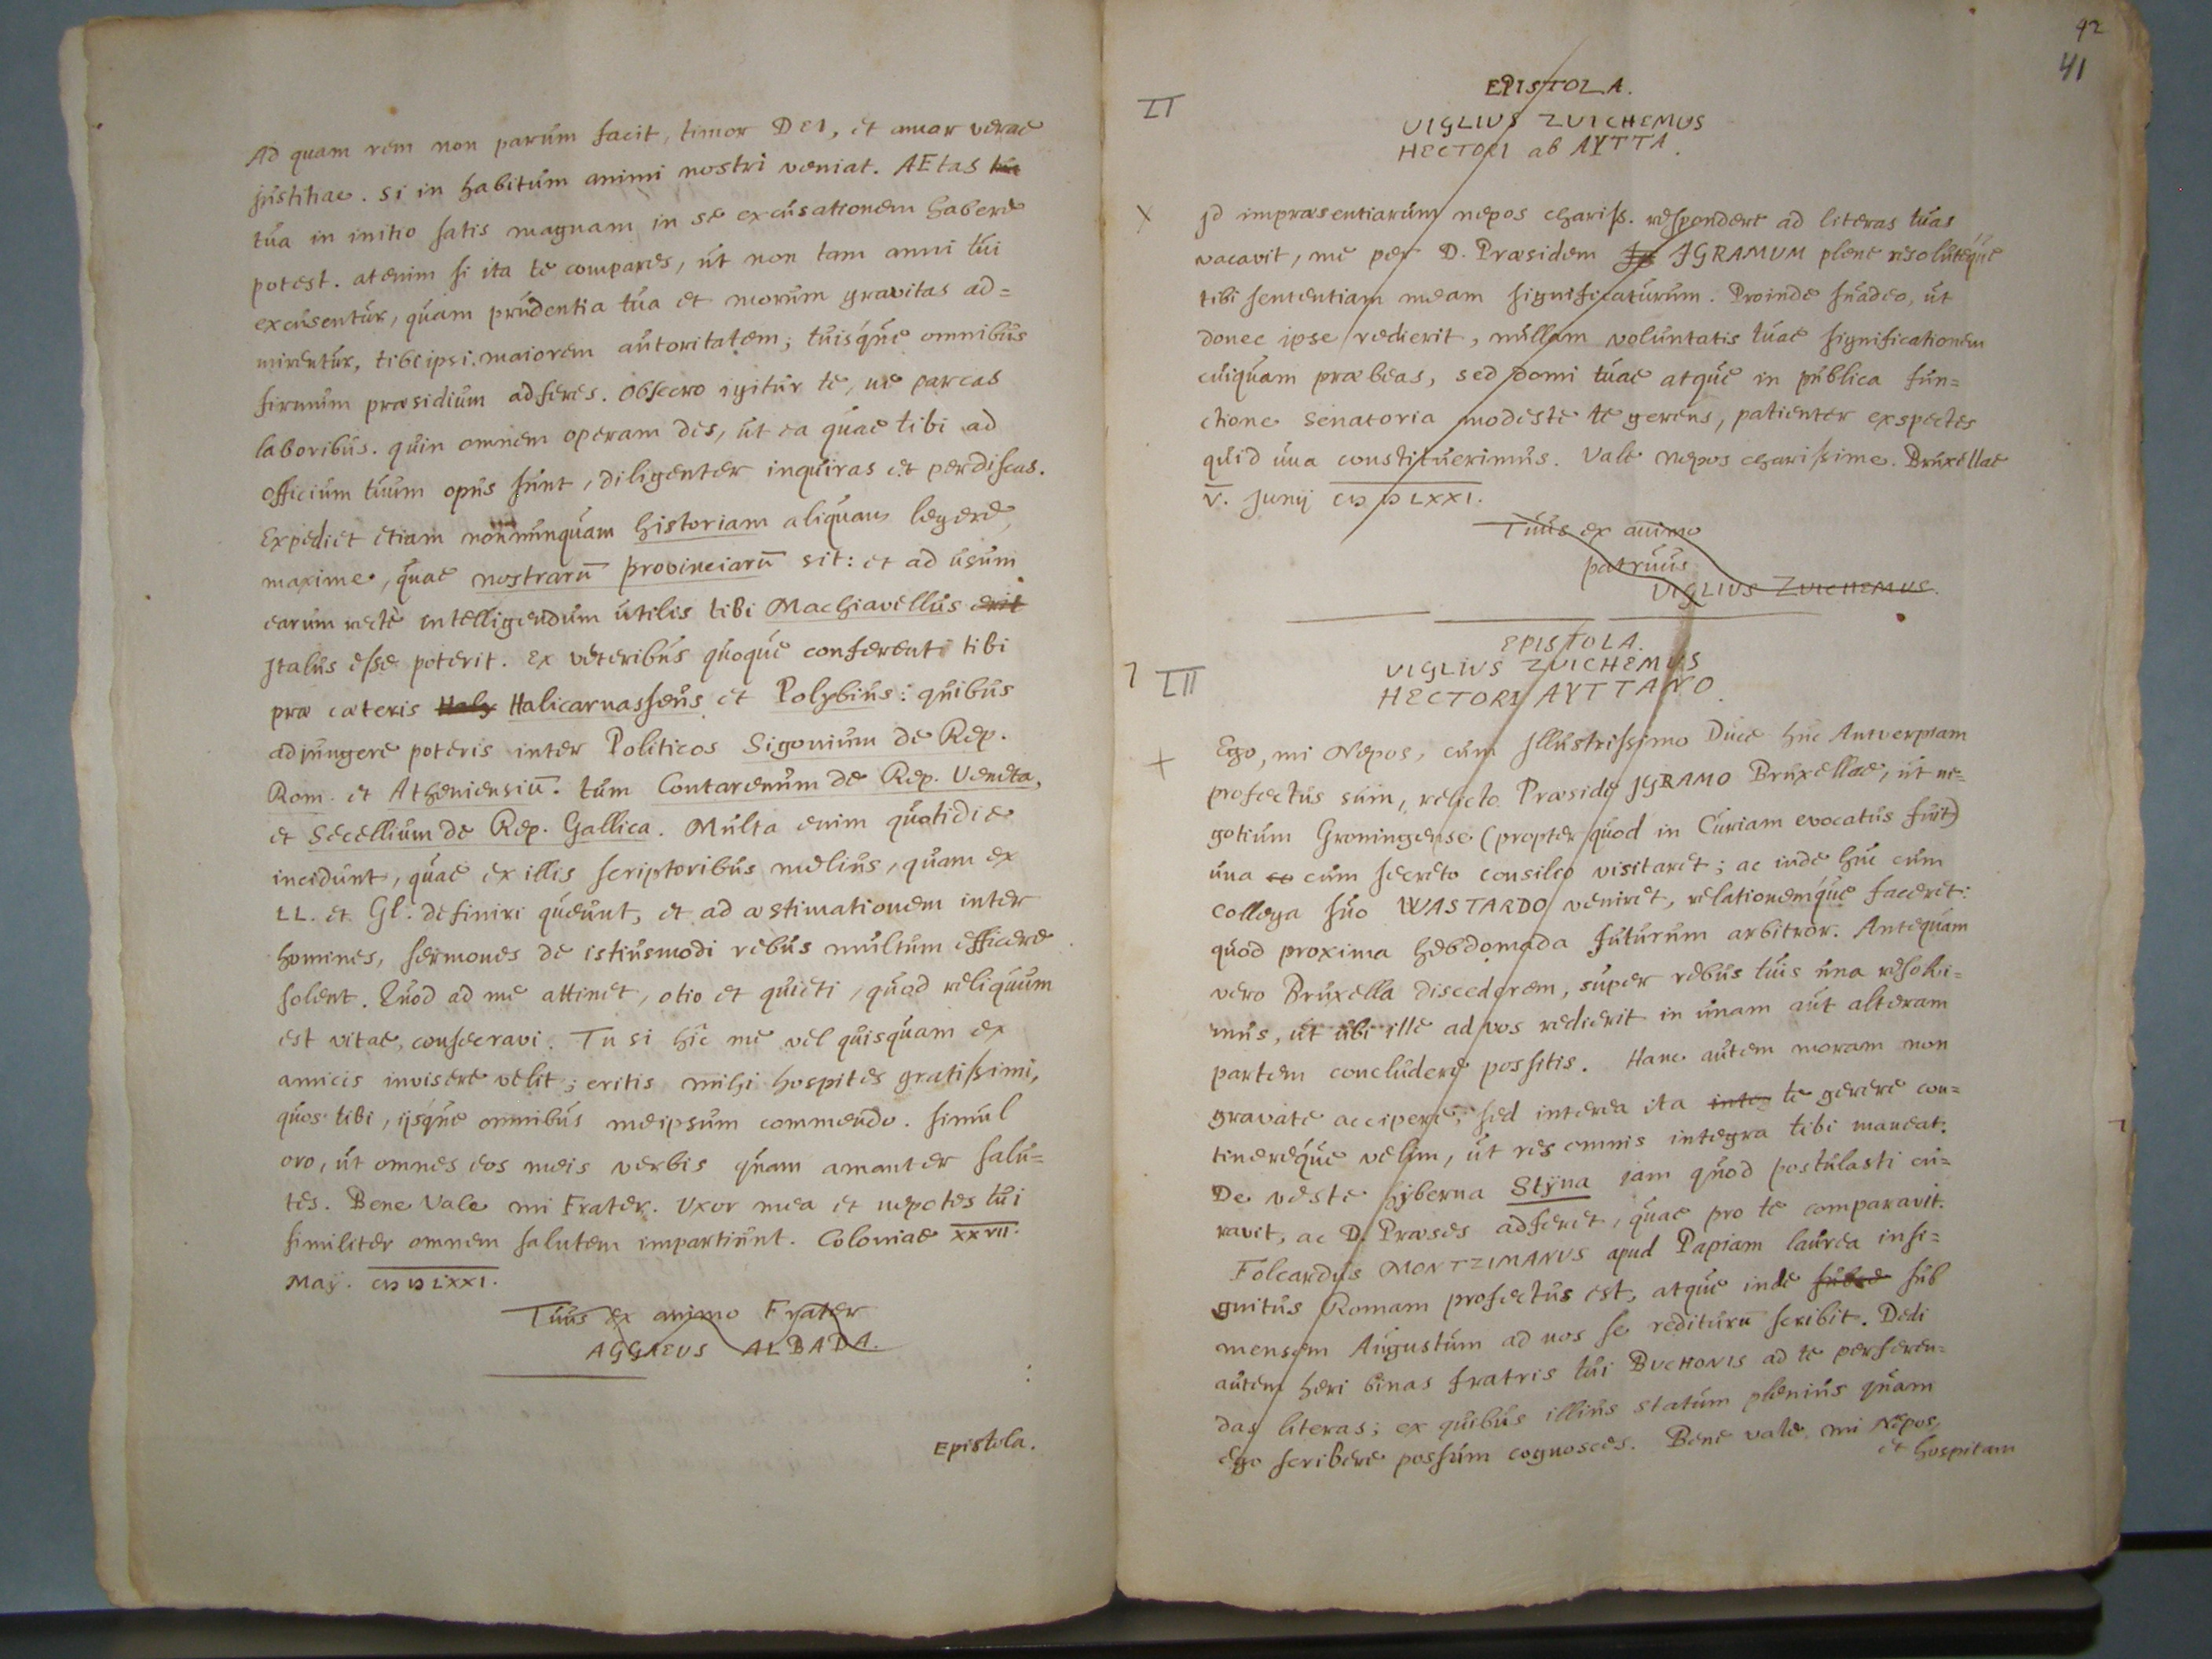 Ad quam rem non parum facit, timor DEI, et amor verae
justitiae. si in habitum animi nostri veniat. AEtas
tua in initio satis magnam in se excusationem habere
potest. atenim si ita te compares, ut non tam anni tui
excusentur, quam prudentia tua et morum gravitas ad=
mirentur, tibi ipsi maiorem autoritatem; tuisque omnibus
firmum praesidium adferes. Obsecro igitur te, ne parcas
laboribus. quin omnem operam des, ut ea quae tibi ad
officium tuum opus sunt, diligenter inquiras et perdiscas.
Expediet etiam nonnunquam historiam aliquam legere,
maxime, quae nostrarū provinciarū sit: et ad usum
earum rectè intelligendum utilis tibi Machiavellus erit
Italus esse poterit. ex veteribus quoque conferent tibi
prae caeteris Haly Halicarnasseus et Polybius: quibus
adjungere poteris inter Politicos Sigonium de Rep.
Rom. et Atheniensiū. tum Contarenum de Rep. Veneta,
et Secellium de Rep. Gallica. Multa enim quotidie
incidunt, quae ex illis scriptoribus melius, quam ex
LL. et Gl. definiri queunt, et ad aestimationem inter
homines, sermones de istiusmodi rebus multum efficere
solent. Quod ad me attinet, otio et quieti, quod reliquum
est vitae, consecravi. Tu si hîc me vel quisquam ex
amicis invisere velit; eritis mihi hospites gratissimi,
quos tibi, ijsque omnibus meipsum commendo. simul
oro, ut omnes eos meis verbis quam amanter salu=
tes. Bene Vale mi Frater. Uxor mea et nepotes tui
similiter omnem salutem impartiunt. Coloniae XXVII.
Maij. CIↃ IↃ LXXI.
Tuus ex animo Frater
AGGAEUS ALBADA.
Epistola.
42
41
LI
EPISTOLA.
VIGLIUS ZUICHEMUS
HECTORI ab AYTTA.
X
Id impraesentiarum nepos chariss. respondere ad literas tuas
vacavit, me per D. Praesidem Jg JGRAMUM plene resoluteque
tibi sententiam meam significaturum. Proinde suadeo, ut
donec ipse redierit, nullam voluntatis tuae significationem
cuiquam praebeas, sed domi tuae atque in publica fun=
ctione senatoria modeste te gerens, patienter exspectes
quid una constituerimus. Vale nepos charissime. Bruxellae
V. Junij CIↃ IↃ LXXI.
Tuus ex animo
patruus
VIGLIUS ZUICHEMUS.
EPISTOLA.
LII
VIGLIUS ZUICHEMUS
HECTORI AYTTANO.
+
Ego, mi Nepos, cum Illustrissimo Duce huc Antverpiam
profectus sum, relicto Praeside JGRAMO Bruxellae, ut ne=
gotium Groningense (propter quod in Curiam evocatus fuit)
una co cum secreto consilio visitaret; ac inde huc cum
Collega suo WASTARDO veniret, relationemque faceret:
quod proxima hebdomada futurum arbitror. Antequam
vero Bruxella discederem, super rebus tuis una resolvi=
mus, ut ubi ille ad vos redierit in unam aut alteram
partem concludere possitis. Hanc autem moram non
gravate accipere, sed interea ita inte te gerere con=
tinereque velim, ut res omnis integra tibi maneat.
De veste hyberna Stÿna iam quod postulasti cu=
ravit, ac D. Praeses adferet, quae pro te comparavit.
Folcardus MONTZIMANUS apud Papiam laurea insi=
gnitus Romam profectus est, atque inde sub
mensem Augustum ad nos se rediturū scribit. Dedi
autem heri binas fratris tui BUCHONIS ad te perferen=
das literas; ex quibus illius statum plenius quam
ego scribere possum cognosces. Bene vale, mi Nepos,
et hospitam